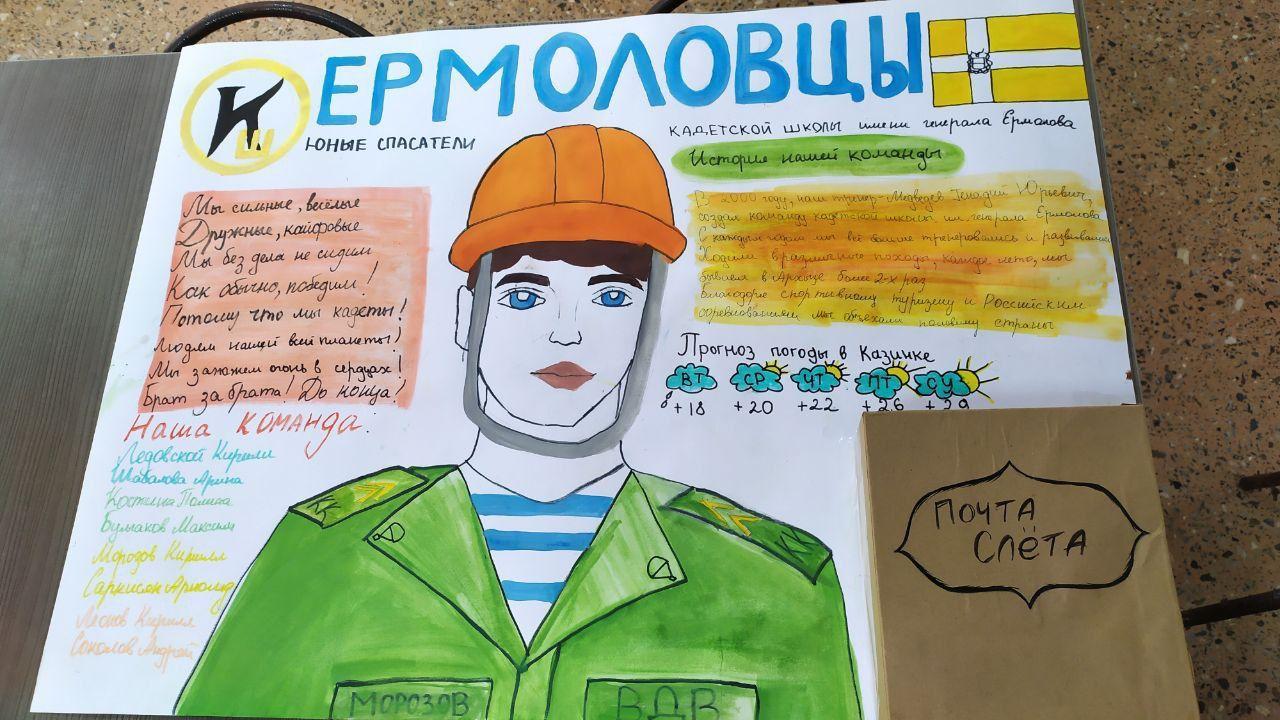 КШ
ЕРМОЛОВЦЫ
ЮНЫЕ СПАСАТЕЛИ
КАДЕТСКОЙ ШКОЛЫ имени генерала Ермолова
История нашей команды
В 2000 году, наш тренер-Медведев Генадий Юрьевич,
создал команду кадетской школы им. генерала Ермолова
С каждым годом мы всё больше тренировались и развивались
Ходили в различные походы, каждое лето, мы
бываем в Архызе более 2-х раз
Благодоря спортивному туризму и Российским
соревнованиям мы объехали половину страны
Мы сильные, весёлые
Дружные, кайфовые
Мы без дела не сидим
Как обычно, победим!
Потому что мы кадеты!
Людям нашей всей планеты!
Мы зажжем огонь в сердцах!
Брат за брата! До конца!
Прогноз погоды в Казинке
ВТ СР ЧТ ПТ СУ
+18 +20 +22 +26 +29
Наша команда:
Ледовской Кирилл
Шабалова Арина
Костина Полина
Булгаков Максим
Морозов Кирилл
Саркисян Арнольд
Леонов Кирилл
Соколов Андрей
ПОЧТА
СЛЁТА
КК
МОРОЗОВ
ВДВ